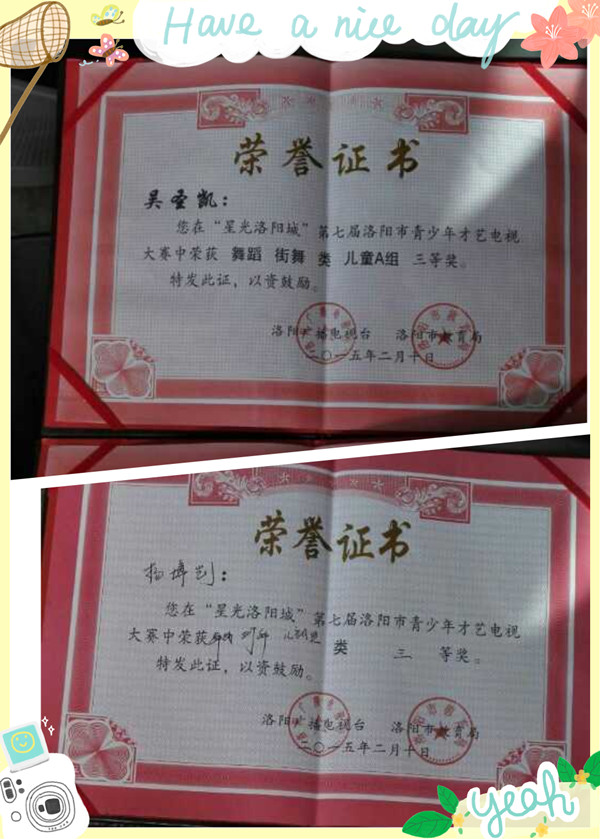 Have a nice day
荣誉证书
吴圣凯：
您在“星光洛阳城”第七届洛阳市青少年才艺电视
大赛中荣获 舞蹈 街舞 类 儿童A组 三等奖。
特发此证，以资鼓励。
洛阳广播电视台 洛阳市教育局
二〇一五年二月十日
荣誉证书
杨博凯：
您在“星光洛阳城”第七届洛阳市青少年才艺电视
大赛中荣获 类 三 等奖。
特发此证，以资鼓励。
洛阳广播电视台 洛阳市教育局
二〇一五年二月十日
yeah